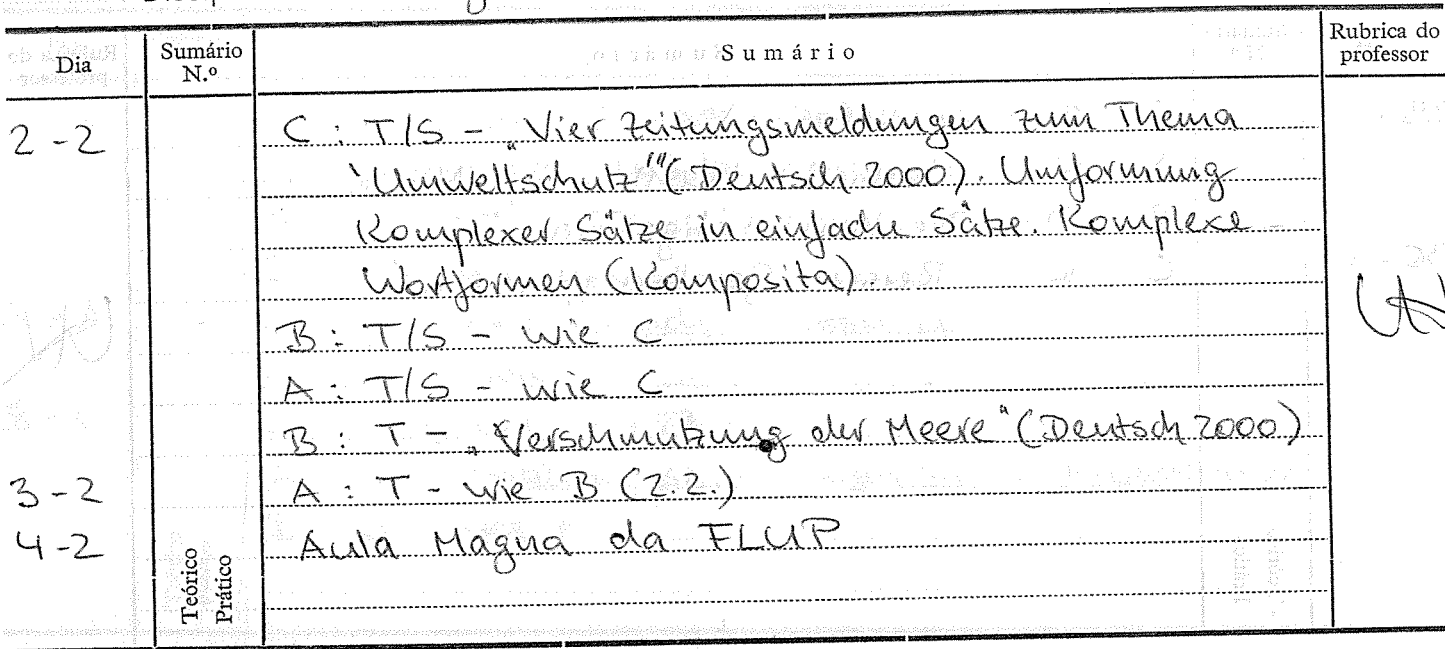 Dia Sumário N.º Sumário Rubrica do professor
2-2 C : T/S - „Vier Zeitungsmeldungen zum Thema
'Umweltschutz'" (Deutsch 2000). Umformung
Komplexer Sätze in einfache Sätze. Komplexe
Wortformen (Komposita).
B : T/S - wie C
A : T/S - wie C
B : T - „Verschmutzung der Meere" (Deutsch 2000)
3-2 A : T - wie B (2.2.)
4-2 Aula Magna da FLUP
Teórico
Prático